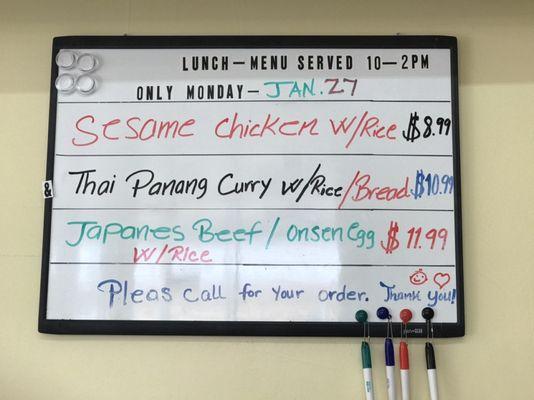 LUNCH—MENU SERVED 10—2PM
ONLY MONDAY— JAN. 27
Sesame chicken w/Rice $8.99
&
Thai Panang Curry w/Rice/Bread $10.99
Japanes Beef/onsen egg $11.99
w/Rice
Pleas call for your order. Thank you!